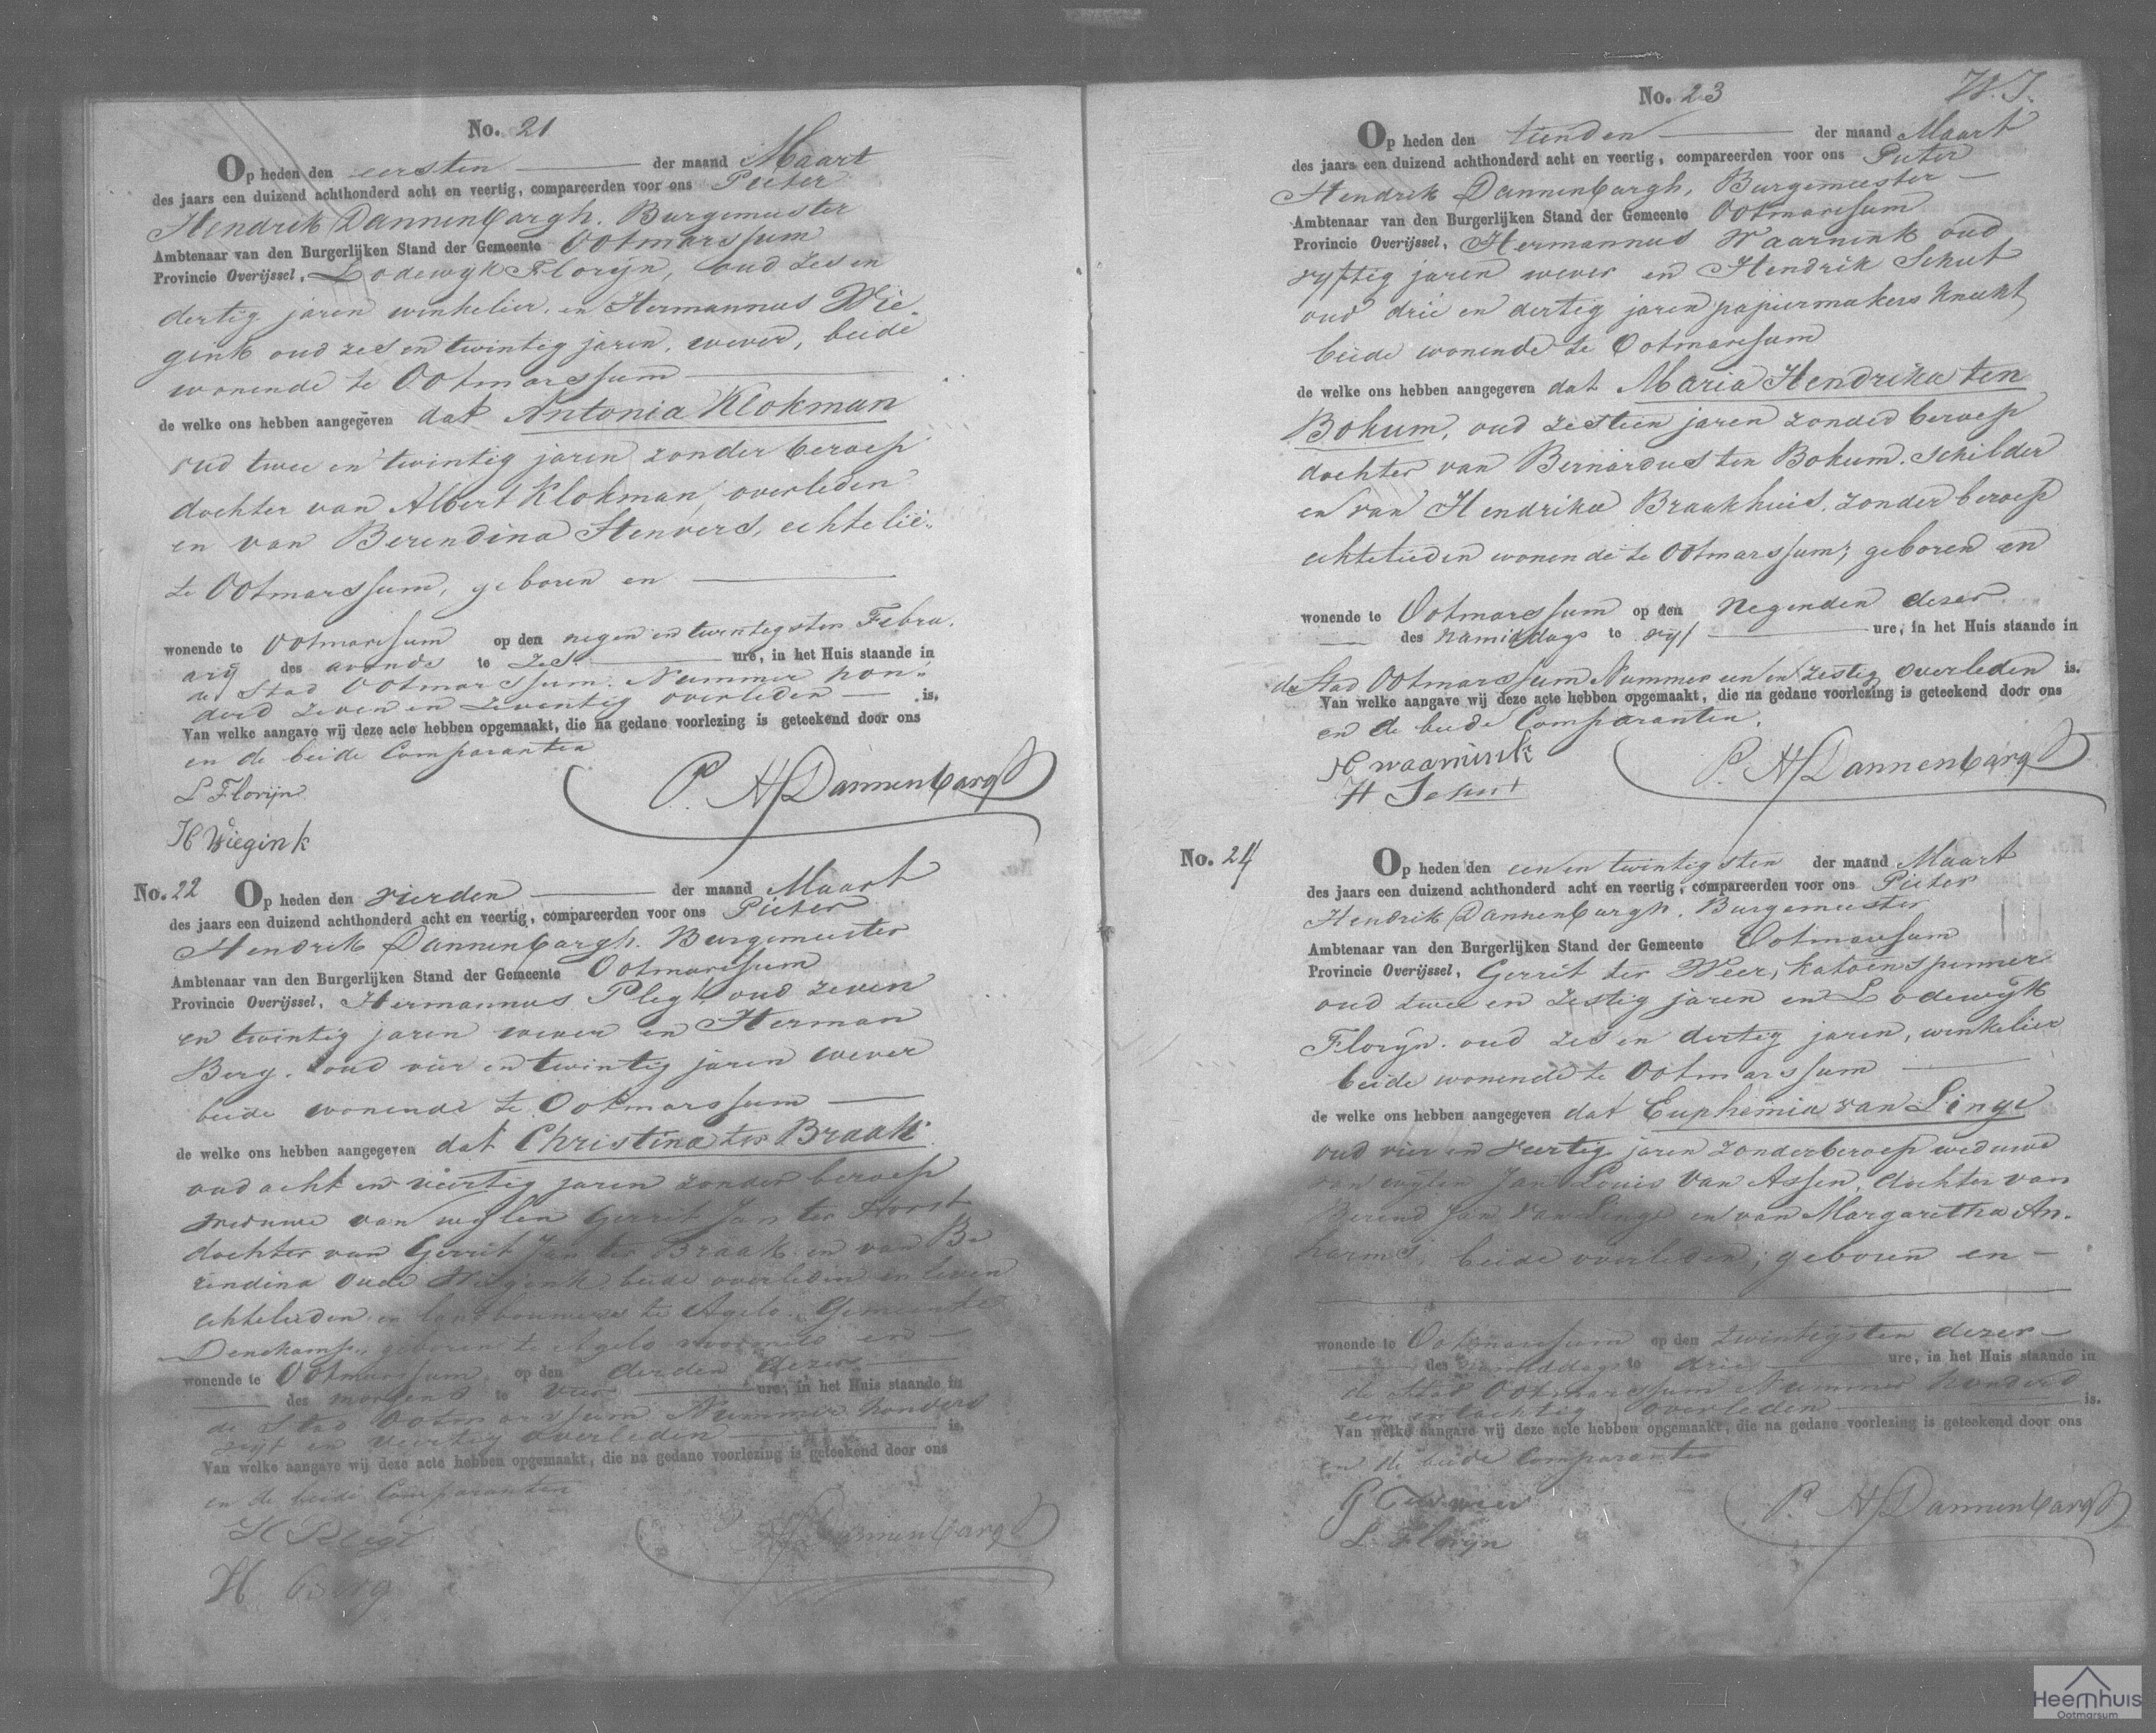 No. 21
Op heden den eersten der maand Maart
des jaars een duizend achthonderd acht en veertig, compareerden voor ons Pieter
Hendrik Dannenbargh, Burgemeester
Ambtenaar van den Burgerlijken Stand der Gemeente Ootmarssum
Provincie Overijssel, Lodewijk Florijn, oud zes en
dertig jaren winkelier, en Hermannus Wie-
gink oud zes en twintig jaren, wever, beide
wonende te Ootmarssum
de welke ons hebben aangegeven dat Antonia Klokman
oud twee en twintig jaren zonder beroep
dochter van Albert Klokman, overleden
en van Berendina Stenvers, echtelie..
te Ootmarssum, geboren en
wonende te Ootmarssum op den negen en twintigsten Febru.
arij des avonds te zes ure, in het Huis staande in
de Stad Ootmarssum. Nummer hon..
derd zeven en zeventig overleden is.
Van welke aangave wij deze acte hebben opgemaakt, die na gedane voorlezing is geteekend door ons
en de beide Comparanten
L Florijn
P. H Dannenbargh
H Wiegink
No. 22
Op heden den vierden der maand Maart
des jaars een duizend achthonderd acht en veertig, compareerden voor ons Pieter
Hendrik Dannenbargh. Burgemeester
Ambtenaar van den Burgerlijken Stand der Gemeente Ootmarssum
Provincie Overijssel, Hermannus Plegt oud zeven
en twintig jaren wever en Herman
Berg. oud vier en twintig jaren wever
beide wonende te Ootmarssum
de welke ons hebben aangegeven dat Christina ter Braak
oud acht en veertig jaren zonder beroep
weduwe van wijlen Gerrit Jan ter Horst
dochter van Gerrit Jan ter Braak en van Be
rendina Oude Wiegink, beide overleden in leven
echtelieden en landbouwers te Agelo. Gemeente
Denekamp, geboren te Agelo voormeld en
wonende te Ootmarssum op den derden dezer
des morgens te vier ure, in het Huis staande in
de Stad Ootmarssum Nummer honderd
vijf en veertig overleden is.
Van welke aangave wij deze acte hebben opgemaakt, die na gedane voorlezing is geteekend door ons
en de beide Comparanten
H Plegt
P. H Dannenbargh
H Berg
No. 23
W. J.
Op heden den tienden der maand Maart
des jaars een duizend achthonderd acht en veertig, compareerden voor ons Pieter
Hendrik Dannenbargh, Burgemeester
Ambtenaar van den Burgerlijken Stand der Gemeente Ootmarssum
Provincie Overijssel, Hermannus Waarnink oud
vijftig jaren wever en Hendrik Schut
oud drie en dertig jaren papiermakers knecht
beide wonende te Ootmarssum
de welke ons hebben aangegeven dat Maria Hendrika ten
Bokum, oud zestien jaren zonder beroep
dochter van Bernardus ten Bokum. schilder
en van Hendrika Braakhuis, zonder beroep
echtelieden wonende te Ootmarssum; geboren en
wonende te Ootmarssum op den negenden dezer
des namiddags te vijf ure, in het Huis staande in
de Stad Ootmarssum Nummer een en zestig overleden is.
Van welke aangave wij deze acte hebben opgemaakt, die na gedane voorlezing is geteekend door ons
en de beide Comparanten.
H waarnink
P. H Dannenbargh
H Schut
No. 24
Op heden den een en twintigsten der maand Maart
des jaars een duizend achthonderd acht en veertig, compareerden voor ons Pieter
Hendrik Dannenbargh. Burgemeester
Ambtenaar van den Burgerlijken Stand der Gemeente Ootmarssum
Provincie Overijssel, Gerrit ter Weer, katoenspinner
oud twee en zestig jaren en Lodewijk
Florijn. oud zes en dertig jaren, winkelier
beide wonende te Ootmarssum
de welke ons hebben aangegeven dat Euphemia van Linge
oud vier en veertig jaren zonder beroep weduwe
van wijlen Jan Louis Van Assen, dochter van
Berend Jan Van Linge en van Margaretha An.
harms, beide overleden; geboren en
wonende te Ootmarssum op den twintigsten dezer
des namiddags te drie ure, in het Huis staande in
de Stad Ootmarssum Nummer honderd
een en tachtig overleden is.
Van welke aangave wij deze acte hebben opgemaakt, die na gedane voorlezing is geteekend door ons
en de beide Comparanten
G Ter weer
P. H Dannenbargh
L. Florijn
Heemhuis
Ootmarsum